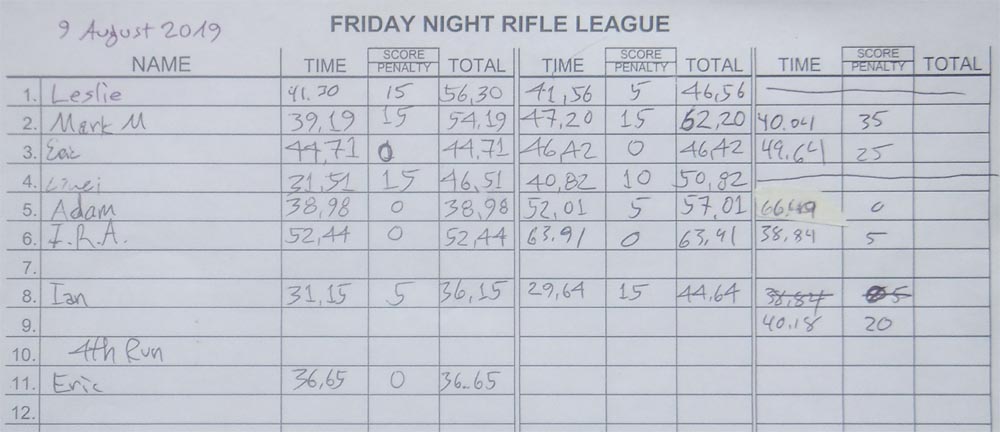 9 August 2019
FRIDAY NIGHT RIFLE LEAGUE
NAME TIME SCORE PENALTY TOTAL TIME SCORE PENALTY TOTAL TIME SCORE PENALTY TOTAL
1. Leslie 41.30 15 56,30 41,56 5 46,56
2. Mark M 39,19 15 54,19 47,20 15 62,20 40.04 35
3. Eric 44,71 0 44,71 46,42 0 46,42 49,64 25
4. 31,51 15 46,51 40,82 10 50,82
5. Adam 38,98 0 38,98 52,01 5 57,01 66,49 0
6. I.R.A. 52,44 0 52,44 63,91 0 63,91 38,84 5
7.
8. Ian 31,15 5 36,15 29,64 15 44,64 38,84 5
9. 40.18 20
10. 4th Run
11. Eric 36,65 0 36.65
12.